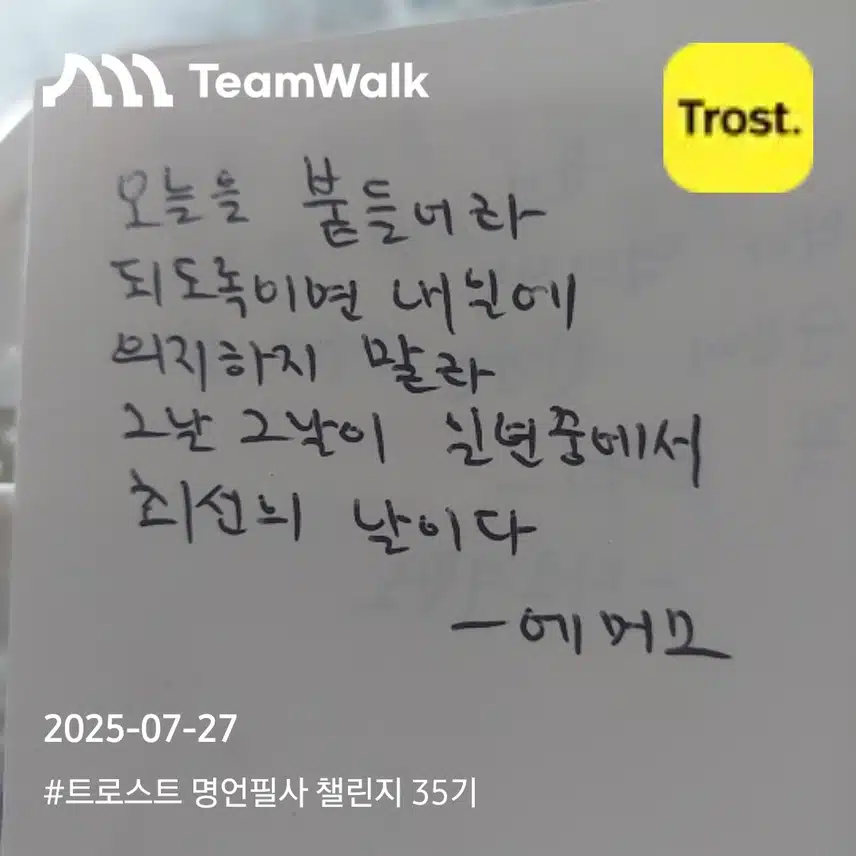 TeamWalk
Trost.
오늘을 붙들어라
되도록이면 내일에
의지하지 말라
그날 그날이 일년중에서
최선의 날이다
- 에머모
2025-07-27
#트로스트 명언필사 챌린지 35기